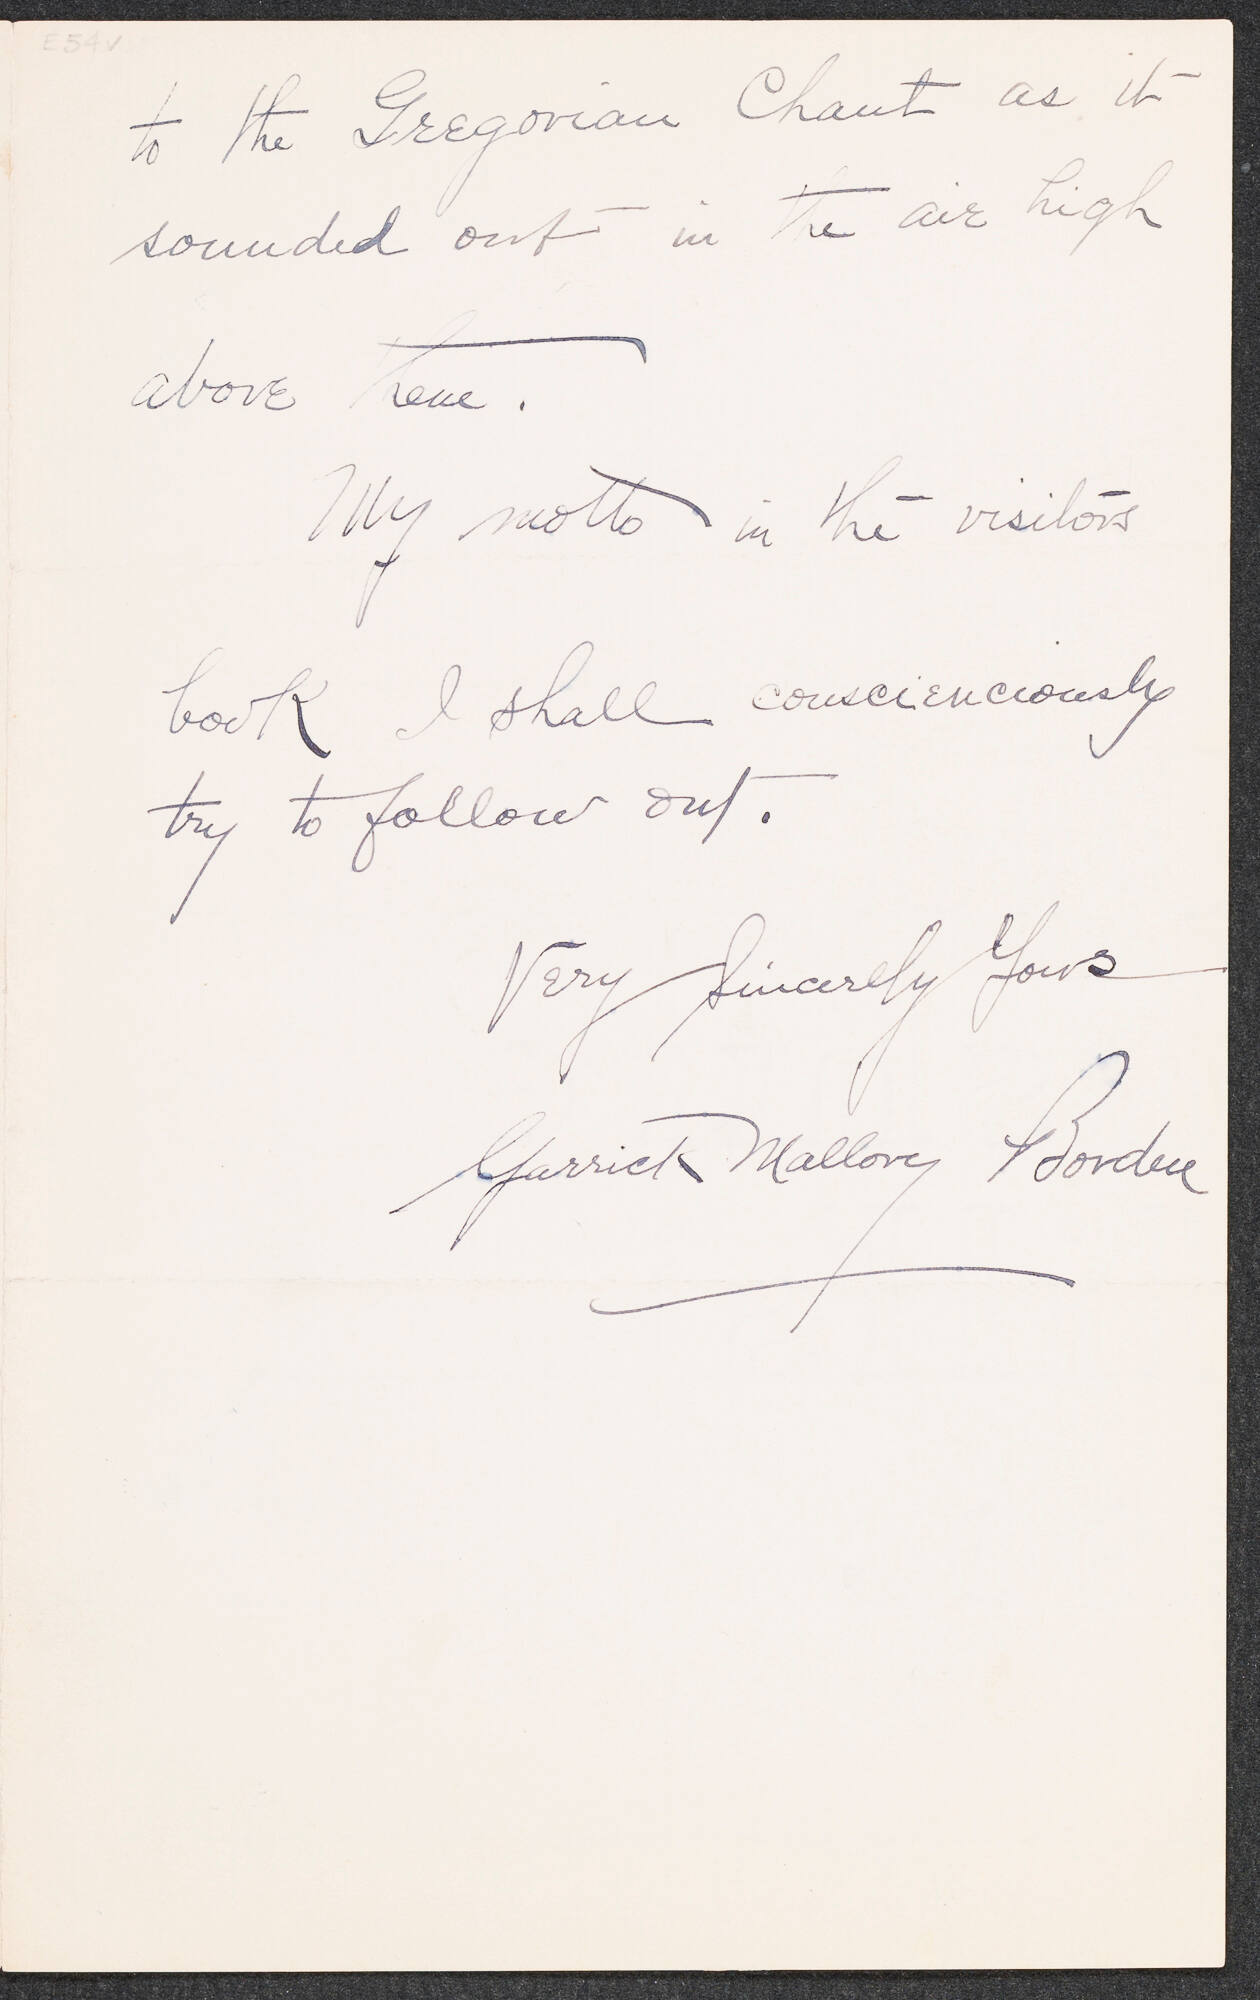 E54v
to the Gregorian Chant as it
sounded out in the air high
above them.
My motto in the visitors
book I shall conscienciously
try to follow out.
Very Sincerely Yours
Garrick Mallory Borden